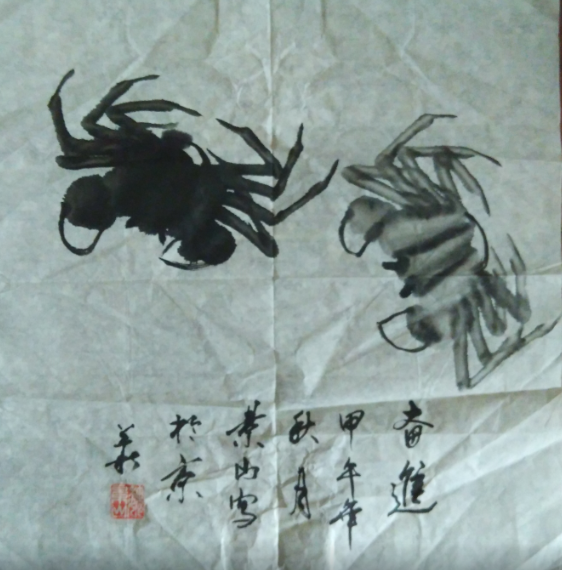 奋進
甲午年
秋月
景山寫
於京
華